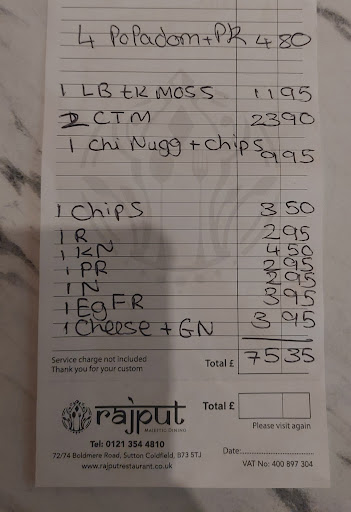 4 Popadom + PK 4 80
1 LB tk MOSS 11 95
2 CTM 23 90
1 Chi Nugg + Chips 9 95
1 Chips 3 50
1 R 2 95
1 KN 4 50
1 PR 2 95
1 N 2 95
1 Eg FR 3 95
1 Cheese + GN 3 95
Service charge not included
Thank you for your custom
Total £ 75 35
rajput
MAJESTIC DINING
Total £
Please visit again
Tel: 0121 354 4810
72/74 Boldmere Road, Sutton Coldfield, B73 5TJ
www.rajputrestaurant.co.uk
Date:
VAT No: 400 897 304